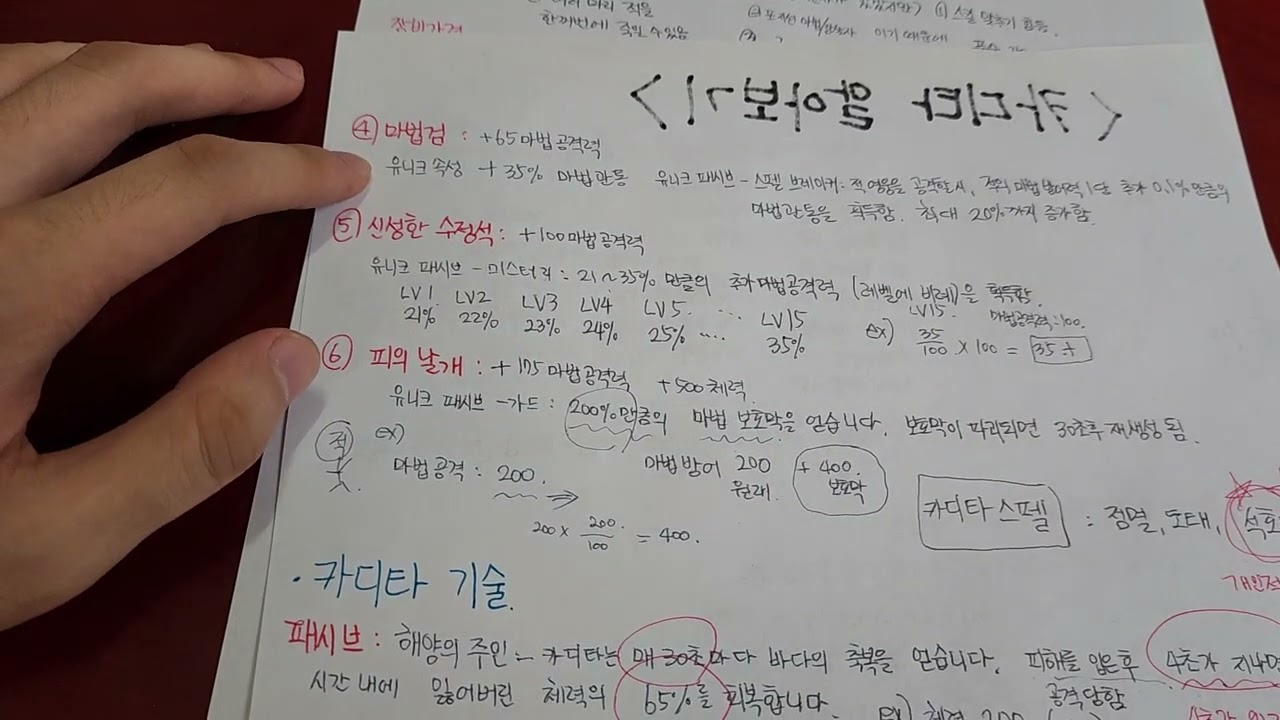 한꺼번에 죽일 수 있음
장비가격
< 카디타 알아보기 >
④ 마법검 : +65 마법 공격력
유니크 속성 + 35% 마법관통 유니크 패시브 - 스펠 브레이커: 적 영웅을 공격할 시, 적의 마법 방어력 1당 추가 0.1%만큼의
마법관통을 획득함. 최대 20%까지 증가함.
⑤ 신성한 수정석 : +100 마법 공격력
유니크 패시브 - 미스터리 : 21~35% 만큼의 추가 마법공격력 (레벨에 비례)을 획득함.
LV1 LV2 LV3 LV4 LV5. ... LV15
21% 22% 23% 24% 25% .... 35%
LV15. 마법공격력:100.
ex) 35/100 × 100 = 35 +
⑥ 피의 날개 : + 175 마법공격력 +500 체력
유니크 패시브 - 가드 : 200%만큼의 마법 보호막을 얻습니다. 보호막이 파괴되면 30초후 재생성 됨.
적 ex)
마법공격 : 200. 마법방어 200 + 400.
원래. 보호막
200 × 200/100 = 400.
카디타 스펠 : 점멸, 도태, 석화
개인적
· 카디타 기술.
패시브 : 해양의 주인 :- 카디타는 매 30초마다 바다의 축복을 얻습니다. 피해를 입은후 4초가 지나면
공격당함
시간 내에 잃어버린 체력의 65%를 회복합니다.